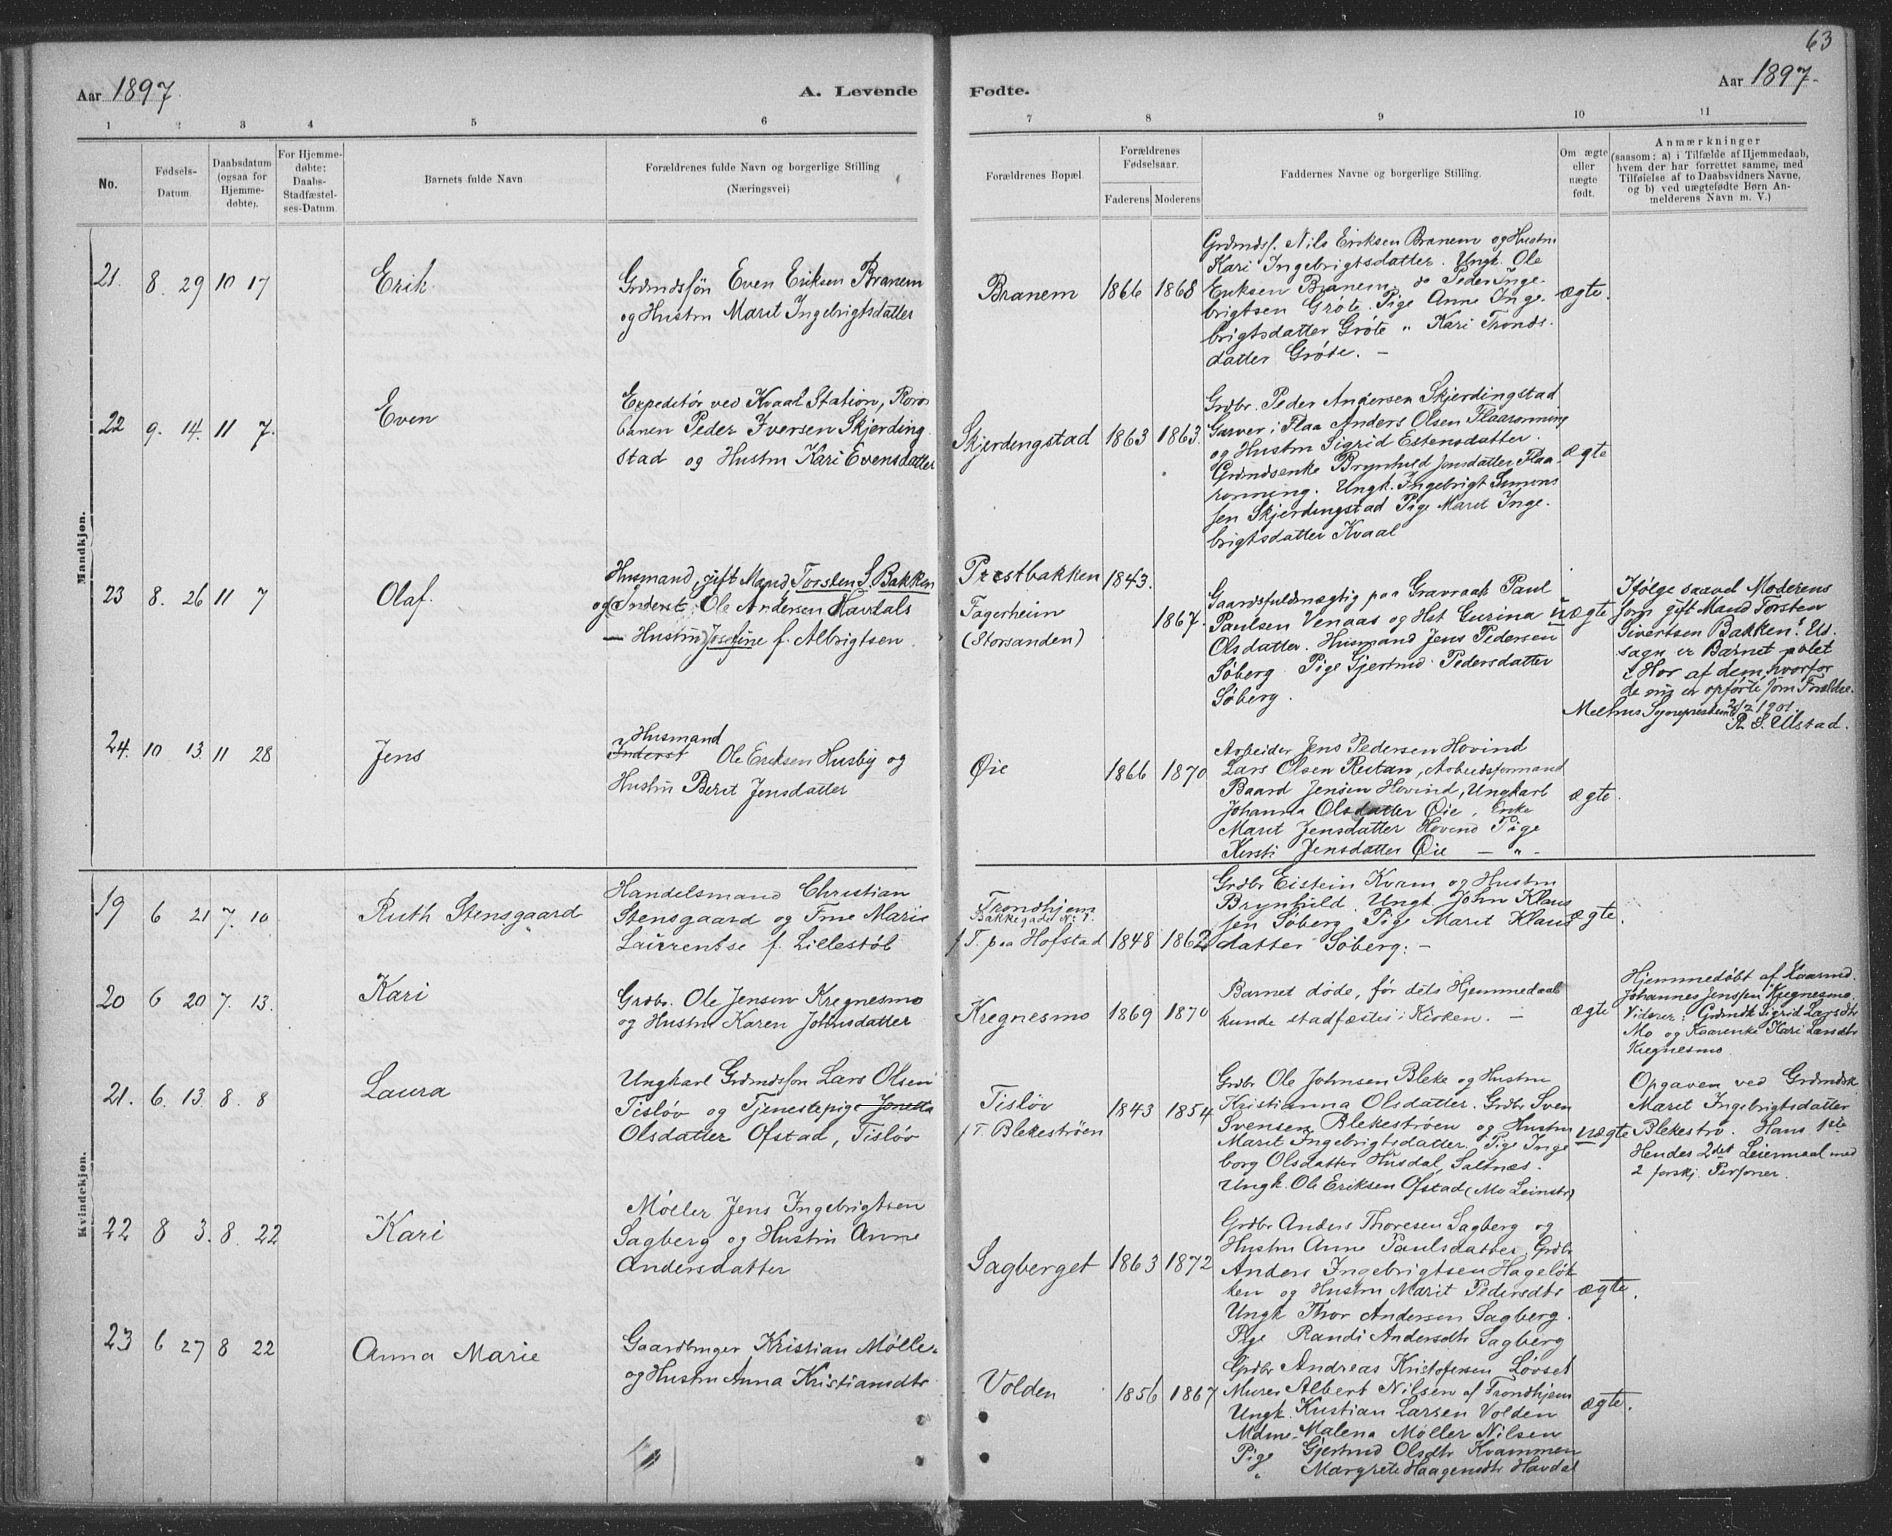 63
Aar 1897.
A. Levende
Fødte.
Aar 1897.
1 2 3 4 5 6 7 8 9 10 11
No.
Fødsels-
Datum.
Daabsdatum
(ogsaa for
Hjemme-
døbte).
For Hjemme-
døbte:
Daabs-
Stadfæstel-
ses-Datum.
Barnets fulde Navn
Forældrenes fulde Navn og borgerlige Stilling
(Næringsvei)
Forældrenes Bopæl.
Forældrenes
Fødselsaar.
Faderens Moderens
Faddernes Navne og borgerlige Stilling.
Om ægte
eller
uægte
født.
Anmærkninger
(saasom: a) i Tilfælde af Hjemmedaab,
hvem der har forrettet samme, med
Tilføielse af to Daabsvidners Navne,
og b) ved uægtefødte Børn An-
melderens Navn m. V.)
Mandkjøn.
21 8 29 10 17
Erik.
Grdmdssøn Even Eriksen Branem
og Hustru Marit Ingebrigtsdatter
Branem 1866 1868
Grdmdsf. Nils Eriksen Branem og Hustru
Kari Ingebrigtsdatter. Ungk. Ole
Eriksen Branem, do Peder Inge-
brigtsen Grøte. Pige Anne Inge-
brigtsdatter Grøte " Kari Tronds-
datter Grøte. —
ægte.
22 9. 14. 11 7.
Even
Expeditør ved Kvaal Station, Røros
banen Peder Iversen Skjerding
stad og Hustru Kari Evensdatter
Skjerdengstad 1863 1863.
Grdbr. Peder Andersen Skjerdingstad
Garver i Flaa Anders Olsen Flaarønning
og Hustru Sigrid Estensdatter.
Grdmdsenke Brynhild Jonsdatter Flaa-
rønning. Ungk. Ingebrigt Simons
sen Skjerdingstad Pige Marit Inge-
brigtsdatter Kvaal
ægte
23 8. 26 11 7
Olaf.
Husmand, gift Mand Torsten S. Bakken
og (Inderst Ole Andersen Havdals
— Hustru) Josefine f. Albrigtsen.
Præstbakken 1843.
Fagerheim
(Storsanden)
1867.
Gaardsfuldmægtig paa Gravraak Paul
Paulsen Venaas og Hst Gurina
Olsdatter. Husmand Jens Pedersen
Søberg. Pige Gjertrud Pedersdatter
Søberg.
uægte
Ifølge saavel Moderens
som gift Mand Torsten
Sivertsen Bakken's Ud-
sagn er Barnet avlet
i Hor af dem, hvorfor
de nu er opførte som Forældre.
Melhus Sognepræstemb. 2/2 1901.
R. S. Ulstad.
24. 10 13. 11 28
Jens
Husmand
Inderst Ole Eriksen Husby og
Hustru Berit Jensdatter
Øie 1866 1870
Arbeider Jens Pedersen Hovind
Lars Olsen Restan, Arbeidsformand
Baard Jensen Hovind, Ungkarl
Johanna Olsdatter Øie, Enke
Marit Jensdatter Hovind Pige
Kersti Jensdatter Øie — " -
ægte.
Kvindekjøn.
19 6 21 7. 10
Ruth Stensgaard
Handelsmand Christian
Stensgaard og Frue Marie
Laurentse f. Lillestøl
Trondhjem
Bakkegade No 1.
f. T. paa Hofstad 1848 1862
Grdbr Eistein Kvam og Hustru
Brynhild. Ungk. John Klaus
sen Søberg. Pige Marit Klaus
datter Søberg. —
ægte.
20 6 20 7. 13.
Kari
Grdbr. Ole Jensen Kregnesmo
og Hustru Karen Johnsdatter
Kregnesmo 1869 1870
Barnet døde, før dets Hjemmedaab
kunde stadfæstes i Kirken. —
ægte
Hjemmedøbt af Kaarmd.
Johannes Jenssen Kregnesmo.
Vidner: Grdmdk Sigrid Larsdtr
Mo og Kaarenke Kari Larsdtr
Kregnesmo
21. 6. 13. 8. 8
Laura
Ungkarl Grdmdssøn Lars Olsen
Tisløv og Tjenestepige Jonetta
Olsdatter Ofstad, Tisløv
Tisløv
f. T. Blekestrøen 1843 1854
Grdbr Ole Johnsen Bleke og Hustru
Kristianna Olsdatter. Grdbr Sven
Svensen Blekestrøen og Hustru
Marit Ingebrigtsdatter. Pige Inge
borg Olsdatter Husdal, Saltnæs.
Ungk. Ole Eriksen Ofstad (Mo Leinstr)
uægte
Opgaven ved Grdmdsk
Marit Ingebrigtsdatter
Blekestrø. Hans 1ste
Hendes 2det Leiermaal med
2 forskj. Personer.
22 8 3. 8. 22
Kari
Møller Jens Ingebrigtsen
Sagberg og Hustru Anne
Andersdatter
Sagberget 1863 1872
Grdbr Anders Thoresen Sagberg og
Hustru Anne Paulsdatter. Grdbr
Anders Ingebrigtsen Hageløk
ken og Hustru Marit Pedersdtr
Ungk Thor Andersen Sagberg.
Pige Randi Andersdtr Sagberg
ægte.
23 6 27 8 22
Anna Marie
Gaardbruger Kristian Møller
og Hustru Anna Kristiansdtr
Volden 1856 1867
Grdbr Andreas Kristofersen Løvset
Murer Albert Nilsen af Trondhjem
Ungk. Kristian Larsen Volden
Mdm. Malena Møller Nilsen
Pige Gjertrud Olsdtr Kvammen
" Margrete Haagensdtr Havdal
ægte.